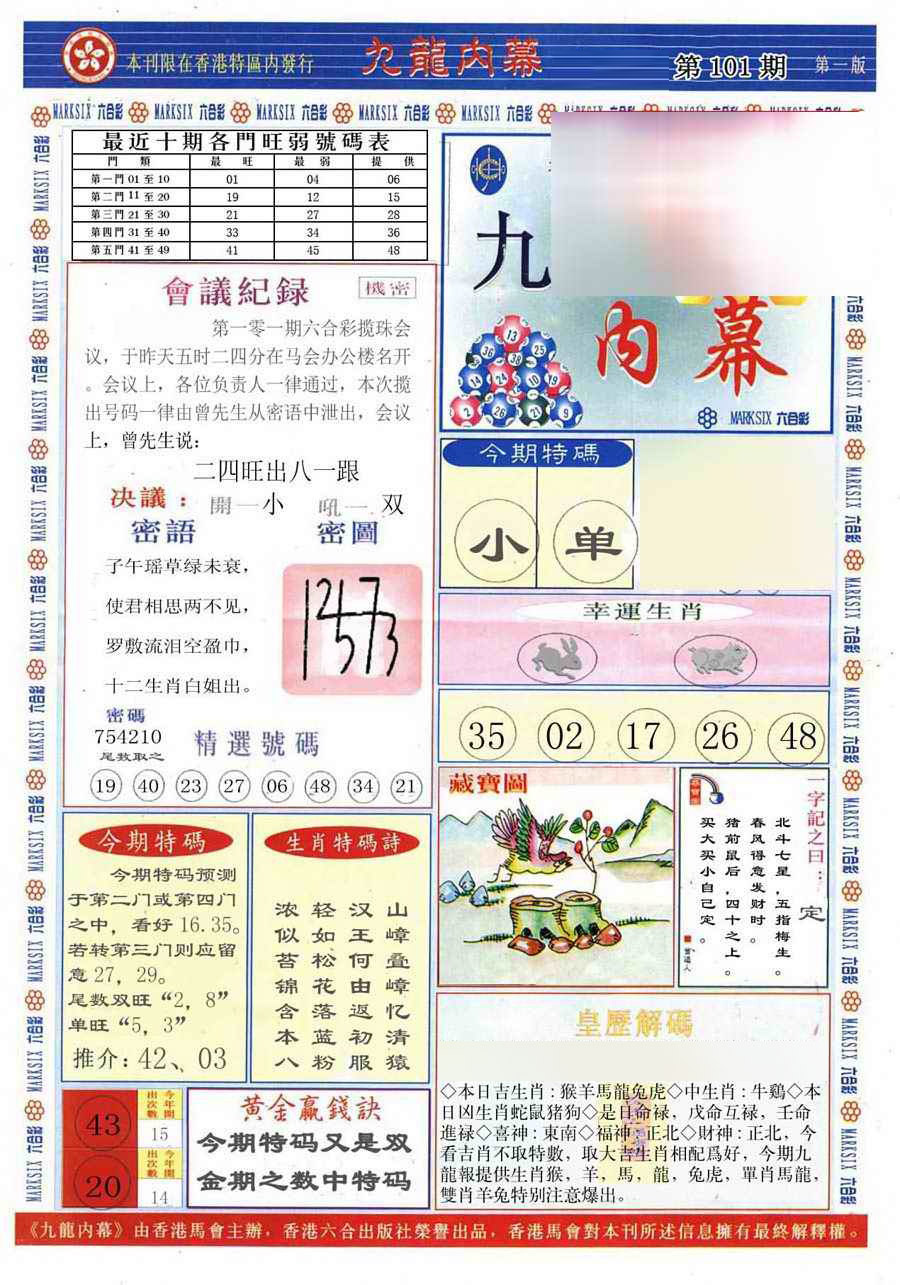 本刊限在香港特區内發行
九龍内幕
第101期
第一版
MARKSIX 六合彩
最近十期各門旺弱號碼表
門 類 最 旺 最 弱 提 供
第一門 01 至 10 01 04 06
第二門 11 至 20 19 12 15
第三門 21 至 30 21 27 28
第四門 31 至 40 33 34 36
第五門 41 至 49 41 45 48
會議紀録
機密
第一零一期六合彩攬珠会
议，于昨天五时二四分在马会办公楼名开
。会议上，各位负责人一律通过，本次攬
出号码一律由曾先生从密语中泄出，会议
上，曾先生说：
二四旺出八一跟
决議：開一小 吼一 双
密語
密圖
子午瑶草绿未衰，
使君相思两不见，
罗敷流泪空盈巾，
十二生肖白姐出。
密碼
754210
尾数取之
精選號碼
19 40 23 27 06 48 34 21
九
内幕
13
36 38 25
14 24 10 19
2 26 21 9
MARKSIX 六合彩
今期特碼
小 单
幸運生肖
35 02 17 26 48
藏寶圖
一字記之曰：定
北斗七星，五指梅生。
春风得意发财时。
猪前鼠后，四十之上。
买大买小自已定。
今期特碼
今期特码预测
于第二门或第四门
之中，看好 16.35。
若转第三门则应留
意 27，29。
尾数双旺“2，8”
单旺“5，3”
推介：42、03
生肖特碼詩
山嶂叠嶂忆清猿
汉王何由返初服
轻如松花落蓝粉
浓似苔锦含本八
皇歷解碼
◇本日吉生肖：猴羊馬龍兔虎◇中生肖：牛鷄◇本
日凶生肖蛇鼠猪狗◇是日命禄，戊命互禄，壬命
進禄◇喜神：東南◇福神：正北◇財神：正北，今
看吉肖不取特數，取大吉生肖相配爲好，今期九
龍報提供生肖猴，羊，馬，龍，兔虎，單肖馬龍，
雙肖羊兔特别注意爆出。
43
今年開出次數
15
20
今年開出次數
14
黄金赢錢訣
今期特码又是双
金期之数中特码
《九龍内幕》由香港馬會主辦，香港六合出版社榮譽出品，香港馬會對本刊所述信息擁有最終解釋權。